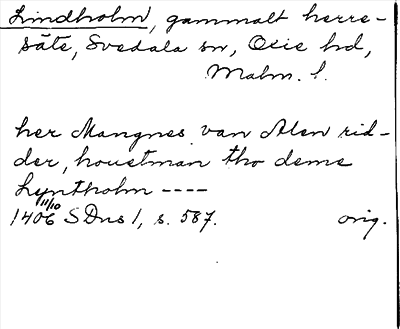 Lindholm, gammalt herre-
säte, Svedala sn, Oxie hd,
Malm. l.
her Mangnes van Alen rid-
der, houetman tho deme
Lyntholm ----
1406 11/10 SDns 1, s. 587. orig.